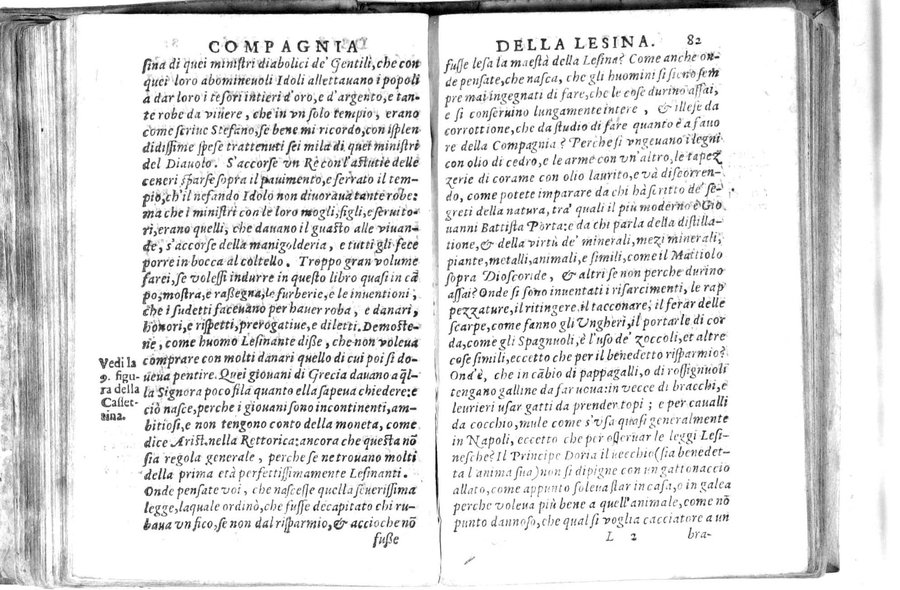 COMPAGNIA
sina di quei ministri diabolici de' Gentili, che con
quei loro abomineuoli Idoli allettauano i popoli
a dar loro i tesori intieri d'oro, e d'argento, e tan-
te robe da viuere, che in vn solo tempio, erano
come scriue Stefano, se bene mi ricordo, con isplen
didissime spese trattenuti sei mila di quei ministri
del Diauolo. S'accorse vn Rè con l'astutie delle
ceneri sparse sopra il pauimento, e serrato il tem-
pio, ch'il nefando Idolo non diuoraua tante robe:
ma che i ministri con le loro mogli, figli, e seruito-
ri, erano quelli, che dauano il guasto alle viuan-
de, s'accorse della manigolderia, e tutti gli fece
porre in bocca al coltello. Troppo gran volume
farei, se volessi indurre in questo libro quasi in cā
po, mostra, e rassegna, le furberie, e le inuentioni,
che i sudetti faceuano per hauer roba, e danari,
honori, e rispetti, prerogatiue, e diletti. Demoste-
ne, come huomo Lesinante disse, che non voleua
comprare con molti danari quello di cui poi si do-
ueua pentire. Quei giouani di Grecia dauano a q̃l-
la Signora poco sila quanto ella sapeua chiedere: e
ciò nasce, perche i giouani sono incontinenti, am-
bitiosi, e non tengono conto della moneta, come
dice Arist. nella Rettorica: ancora che questa nō
sia regola generale, perche se ne trouano molti
della prima età perfettissimamente Lesinanti.
Onde pensate voi, che nascesse quella seuerissima
legge, laquale ordinò, che fusse decapitato chi ru-
baua vn fico, se non dal risparmio, & accioche nō
fusse
Vedi la
9. figu-
ra della
Casset-
tina.
DELLA LESINA. 82
fusse lesa la maestà della Lesina? Come anche on-
de pensate, che nasca, che gli huomini si siano sem
pre mai ingegnati di fare, che le cose durino assai,
e si conseruino lungamente intere, & illese da
corrottione, che da studio di fare quanto è a fauo
re della Compagnia? Perche si vngeuano i legni
con olio di cedro, e le arme con vn'altro, le tapez
zerie di corame con olio laurito, e và discorren-
do, come potete imparare da chi hà scritto de' se-
greti della natura, tra' quali il più moderno è Gio
uanni Battista Porta: e da chi parla della distilla-
tione, & della virtù de' minerali, mezi minerali,
piante, metalli, animali, e simili, come il Mattiolo
sopra Dioscoride, & altri se non perche durino
assai? Onde si sono inuentati i risarcimenti, le rap
pezzature, il ritingere, il tacconare, il ferar delle
scarpe, come fanno gli Vngheri, il portarle di cor
da, come gli Spagnuoli, è l'uso de' zoccoli, et altre
cose simili, eccetto che per il benedetto risparmio?
Ond'è, che in cābio di pappagalli, o di rossignuoli
tengano galline da far uoua: in vecce di bracchi, e
leurieri usar gatti da prender topi; e per caualli
da cocchio, mule come s'vsa quasi generalmente
in Napoli, eccetto che per osseruar le leggi Lesi-
nesche? Il Principe Doria il vecchio (sia benedet-
ta l'anima sua) non si dipigne con vn gattonaccio
allato, come appunto soleua star in casa, o in galea
perche voleua più bene a quell'animale, come nō
punto dannoso, che qual si voglia cacciatore a un
L 2 bra-